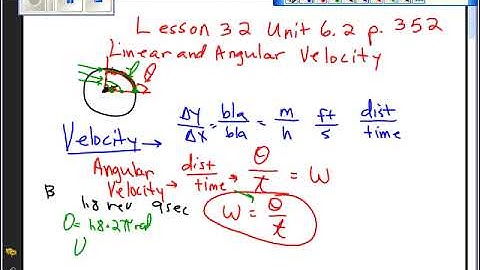 Lesson 32 Unit 6.2 p. 352
Linear and Angular Velocity
θ
Velocity → ΔY/ΔX = bla/bla = m/h ft/s dist/time
Angular Velocity → dist/time → θ/t = W
B 48 rev 9sec
W = θ/t
θ = 48·2π rad